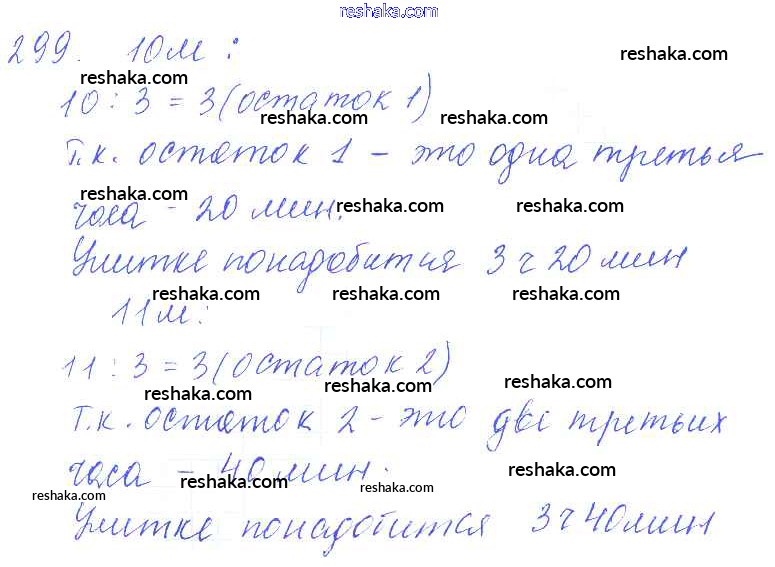 reshaka.com
299. 10м:
reshaka.com reshaka.com
10 : 3 = 3 (остаток 1)
reshaka.com reshaka.com
т.к. остаток 1 - это одна третья
reshaka.com reshaka.com reshaka.com
часа - 20 мин.
Улитке понадобится 3 ч 20 мин
reshaka.com reshaka.com reshaka.com
11м:
11 : 3 = 3 (остаток 2)
reshaka.com reshaka.com reshaka.com
т.к. остаток 2 - это две третьих
reshaka.com reshaka.com
часа - 40 мин.
reshaka.com reshaka.com
Улитке понадобится 3 ч 40 мин